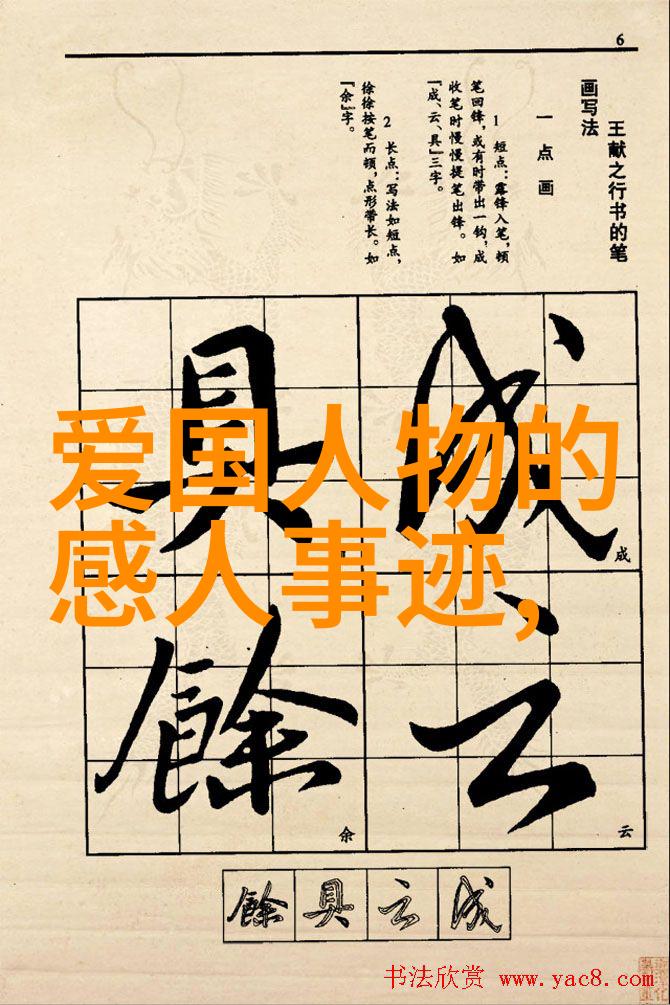 6
王献之行书的笔
画写法
一 点 画
1 短点:露锋入笔,顿
笔回锋,或有时带出一钩,成
收笔时慢慢提笔出锋。如
『成、云、具』三字。
2 长点:写法如短点,
徐徐按笔而顿,点形带长。如
『余』字。
成
具
云
餘
成
云
余
爱国人物的
感人事迹,
餘 具 云 成
书法欣赏 www.yac8.com